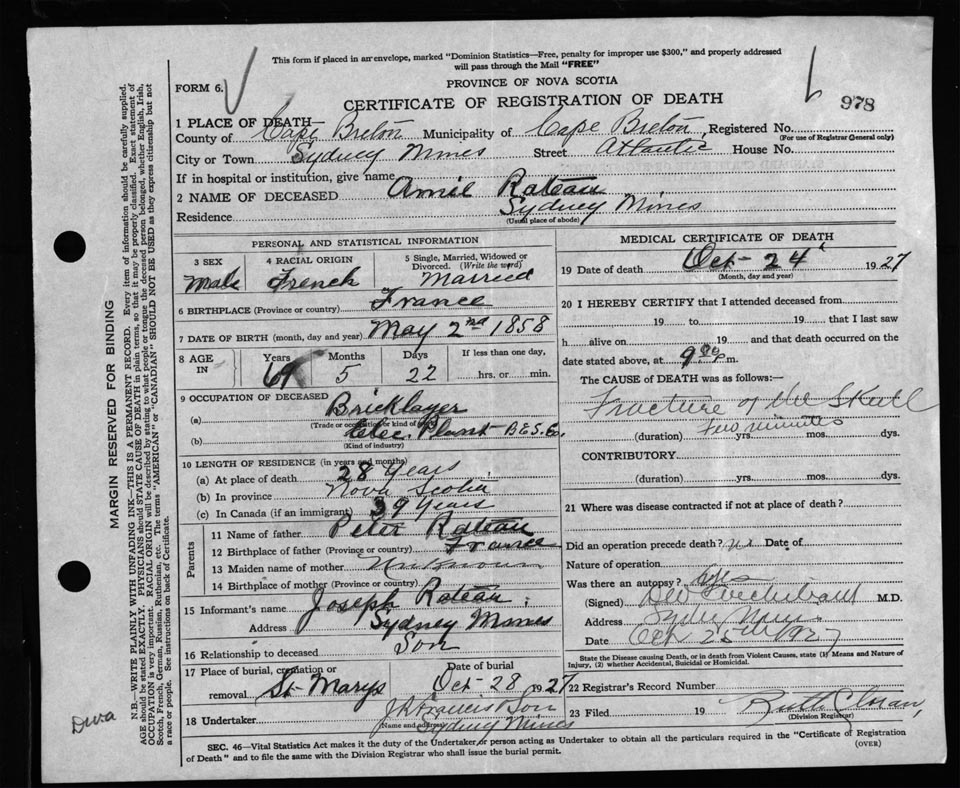 This form if placed in an envelope, marked "Dominion Statistics—Free, penalty for improper use $300," and properly addressed
will pass through the Mail "FREE"
FORM 6.
PROVINCE OF NOVA SCOTIA
CERTIFICATE OF REGISTRATION OF DEATH
978
1 PLACE OF DEATH—
County of Cape Breton Municipality of Cape Breton, Registered No.
(For use of Registrar General only)
City or Town Sydney Mines Street Atlantic House No.
If in hospital or institution, give name
2 NAME OF DECEASED Amil Rateau
Residence Sydney Mines
(Usual place of abode)
PERSONAL AND STATISTICAL INFORMATION
3 SEX
Male
4 RACIAL ORIGIN
French
5 Single, Married, Widowed or
Divorced. (Write the word)
Married
6 BIRTHPLACE (Province or country) France
7 DATE OF BIRTH (month, day and year) May 2nd 1858
8 AGE IN
Years Months Days If less than one day,
69 5 22 hrs. or min.
9 OCCUPATION OF DECEASED
(a) Bricklayer
(Trade or occupation or kind of work)
(b) Elec. Plant B.E.S.Co.
(Kind of industry)
10 LENGTH OF RESIDENCE (in years and months)
(a) At place of death 28 years
(b) In province Nova Scotia
(c) In Canada (if an immigrant) 39 years
Parents
11 Name of father Peter Rateau
12 Birthplace of father (Province or country) France
13 Maiden name of mother Unknown
14 Birthplace of mother (Province or country)
15 Informant's name Joseph Rateau
Address Sydney Mines
16 Relationship to deceased Son
17 Place of burial, cremation or
removal St Marys
Date of burial
Oct-28 1927
18 Undertaker J R Francis Son
(Name and address) Sydney Mines
MEDICAL CERTIFICATE OF DEATH
19 Date of death Oct-24 1927
(Month, day and year)
20 I HEREBY CERTIFY that I attended deceased from
19 to 19 that I last saw
h alive on 19 and that death occurred on the
date stated above, at 9 p.m.
The CAUSE of DEATH was as follows:—
Fracture of the Skull
Few minutes
(duration) yrs. mos. dys.
CONTRIBUTORY
(duration) yrs. mos. dys.
21 Where was disease contracted if not at place of death?
Did an operation precede death? Date of
Nature of operation
Was there an autopsy?
(Signed) M.D.
Address Sydney Mines
Date Oct 25th 1927
State the Disease causing Death, or in death from Violent Causes, state (1) Means and Nature of
Injury, (2) whether Accidental, Suicidal or Homicidal.
22 Registrar's Record Number
23 Filed 19
(Division Registrar)
SEC. 46—Vital Statistics Act makes it the duty of the Undertaker or person acting as Undertaker to obtain all the particulars required in the "Certificate of Registration
of Death" and to file the same with the Division Registrar who shall issue the burial permit.
(OVER)
MARGIN RESERVED FOR BINDING
N.B.—WRITE PLAINLY WITH UNFADING INK—THIS IS A PERMANENT RECORD. Every item of information should be carefully supplied.
AGE should be stated EXACTLY. PHYSICIANS should STATE CAUSE OF DEATH in plain terms, so that it may be properly classified. Exact statement of
OCCUPATION is very important. RACIAL ORIGIN will be described by stating to what people or tongue the deceased person belonged, whether English, Irish,
Scotch, French, German, Russian, Ruthenian, etc. The terms "AMERICAN" or "CANADIAN" SHOULD NOT BE USED as they express citizenship but not
a race or people. See instructions on back of Certificate.